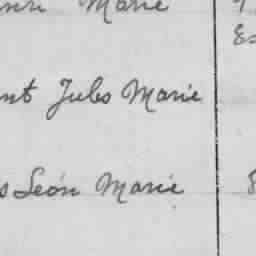 Marie
nt Jules Marie
s León Marie